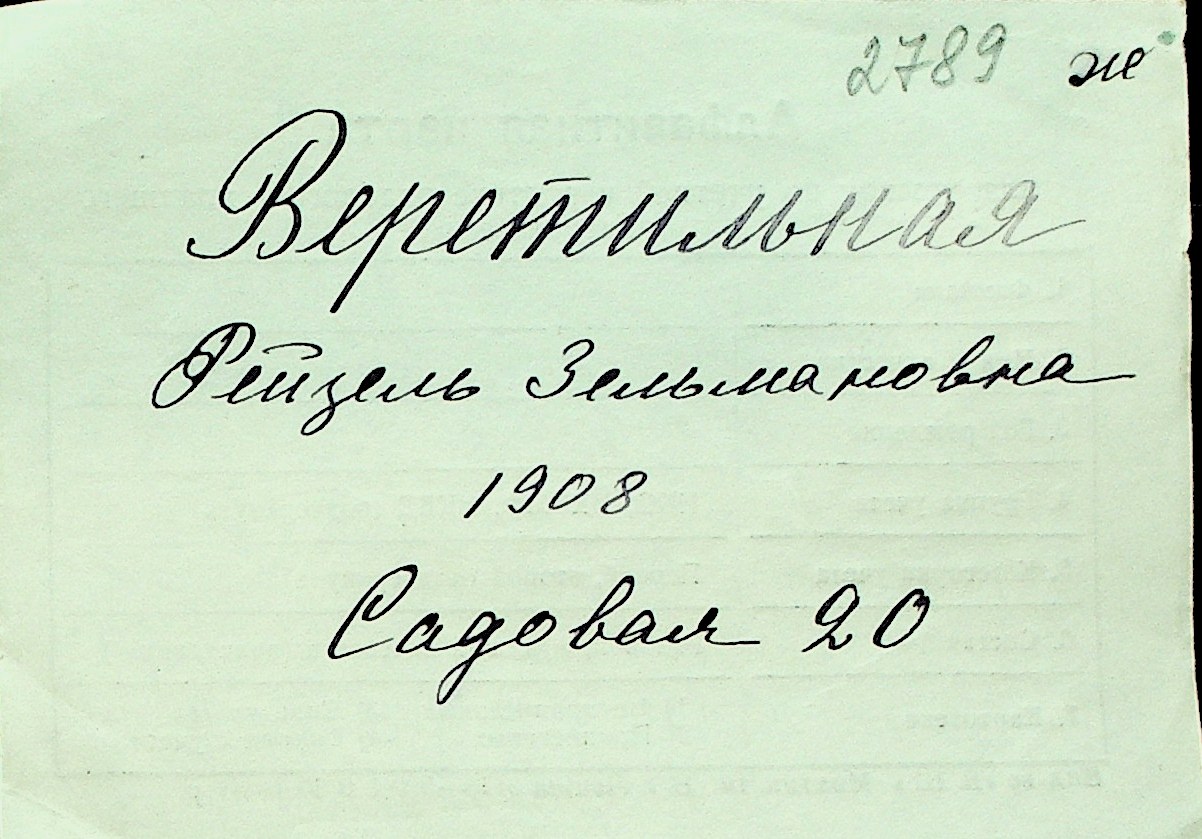 2789 же
Веретильная
Рейзель Зельмановна
1908
Садовая 20